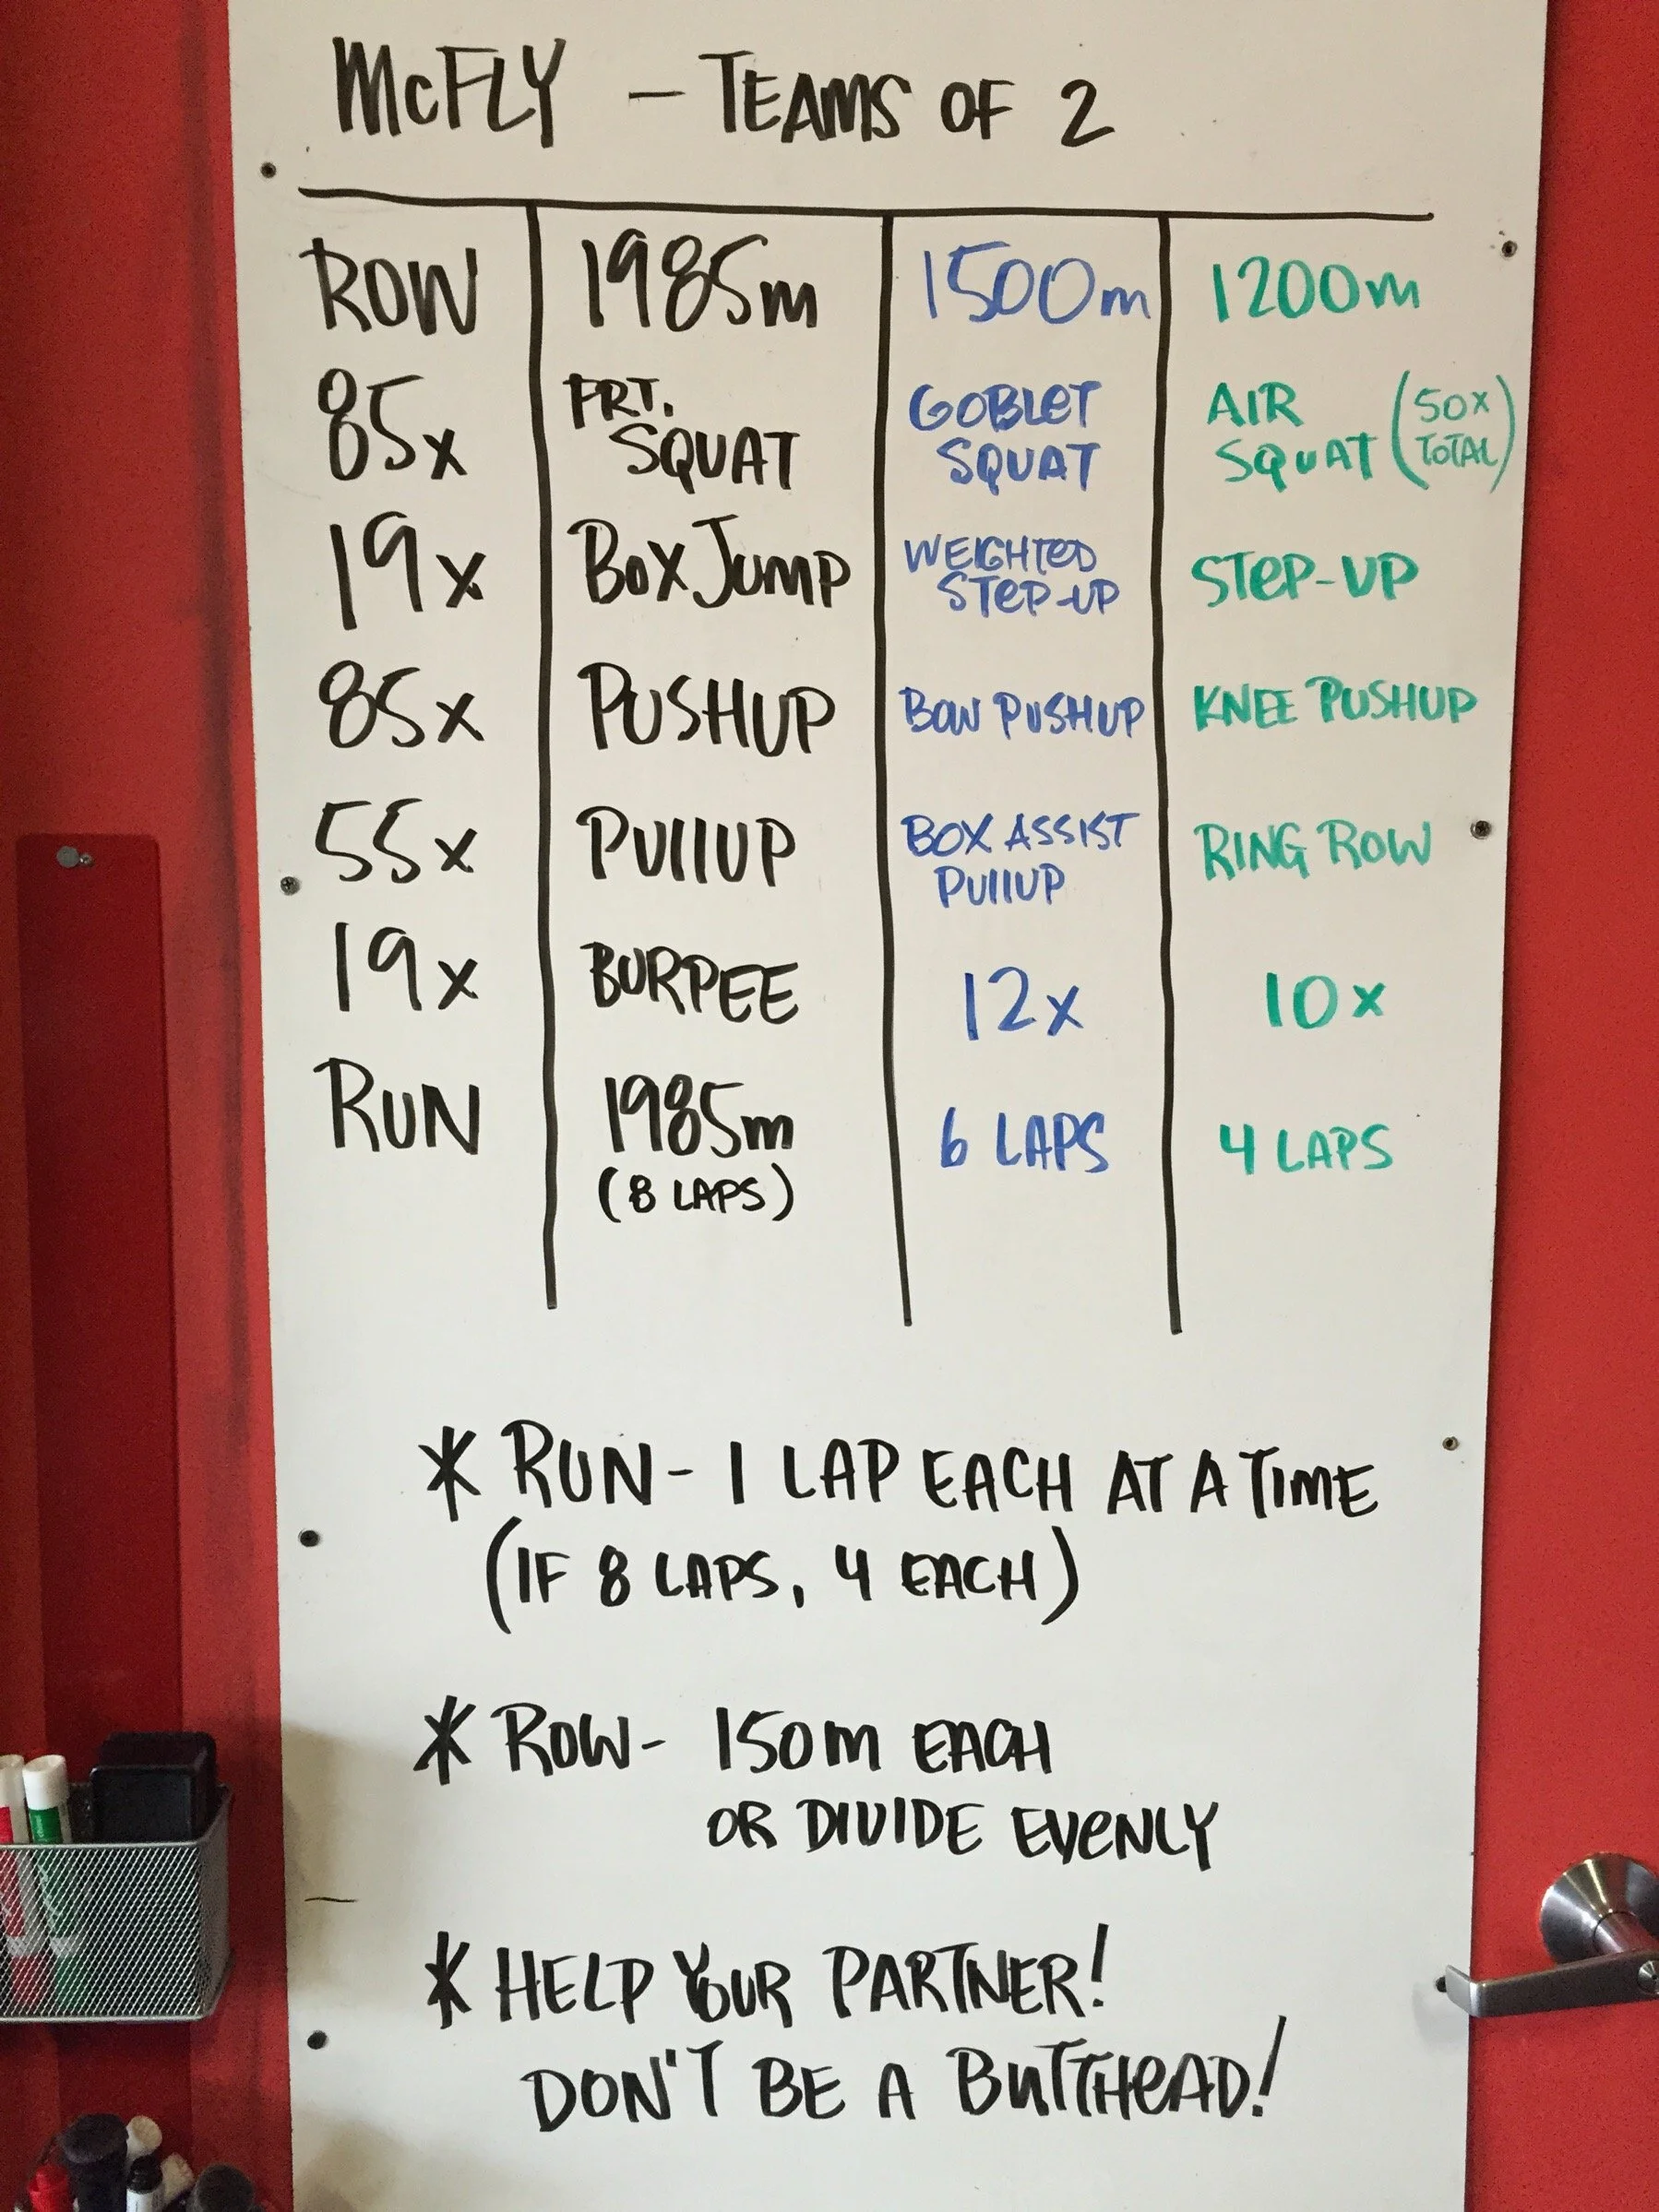 McFLY - TEAMS OF 2
ROW 1985m 1500m 1200m
85x FRT. SQUAT GOBLET SQUAT AIR SQUAT (50x TOTAL)
19x BOX JUMP WEIGHTED STEP-UP STEP-UP
85x PUSHUP BOW PUSHUP KNEE PUSHUP
55x PULLUP BOX ASSIST PULLUP RING ROW
19x BURPEE 12x 10x
RUN 1985m (8 LAPS) 6 LAPS 4 LAPS
* RUN - 1 LAP EACH AT A TIME
(IF 8 LAPS, 4 EACH)
* ROW - 150m EACH
OR DIVIDE EVENLY
* HELP YOUR PARTNER!
DON'T BE A BUTTHEAD!